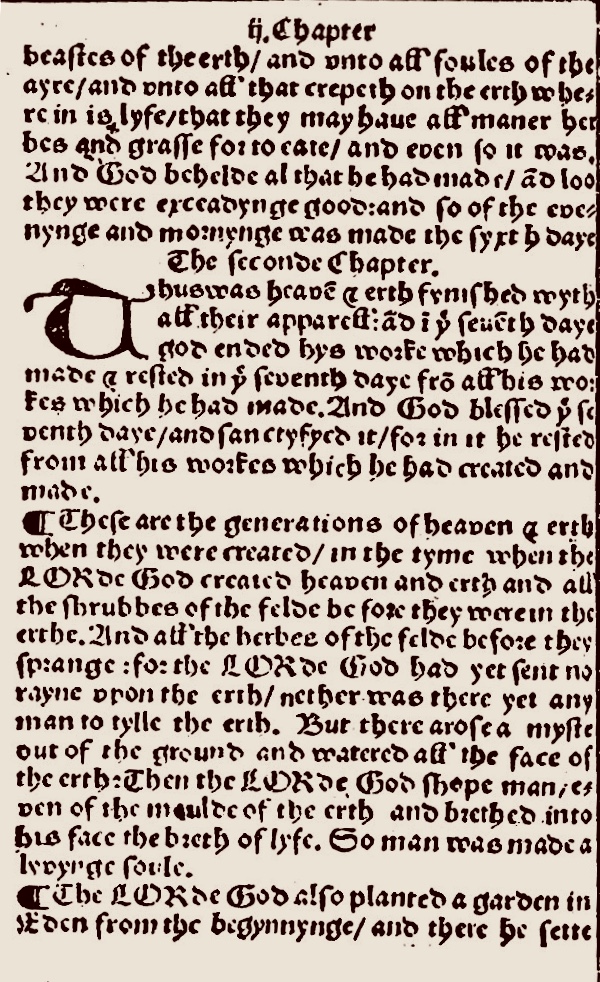 ij.Chapter
beastes of the erth/ and vnto all foules of the
ayre/and vnto all that crepeth on the erth whe⸗
re in is lyfe/that they may haue all maner her
bes and grasse for to eate/ and even so it was.
And God behelde al that he had made/ ãd loo
they were exceadynge good:and so of the eve⸗
nynge and mornynge was made the syxth daye
The seconde Chapter.
Thus was heavẽ ⁊ erth fynished wyth
all their apparell: ãd ĩ yͤ seuẽth daye
god ended hys worke which he had
made ⁊ rested in yͤ seventh daye frõ all his wor
kes which he had made. And God blessed yͤ se
venth daye/and sanctyfyed it/for in it he rested
from all his workes which he had created and
made.
¶ These are the generations of heaven ⁊ erth
when they were created/ in the tyme when the
LORde God created heaven and erth and all
the shrubbes of the felde be fore they were in the
erthe. And all the herbes of the felde before they
sprange :for the LORde God had yet sent no
rayne vpon the erth/ nether was there yet any
man to tylle the erth. But there arose a myste
out of the ground and watered all the face of
the erth:Then the LORde God shope man/e⸗
ven of the moulde of the erth and brethed into
his face the breth of lyfe. So man was made a
lyvynge soule.
¶ The LORde God also planted a garden in
Eden from the begynnynge/ and there he sette